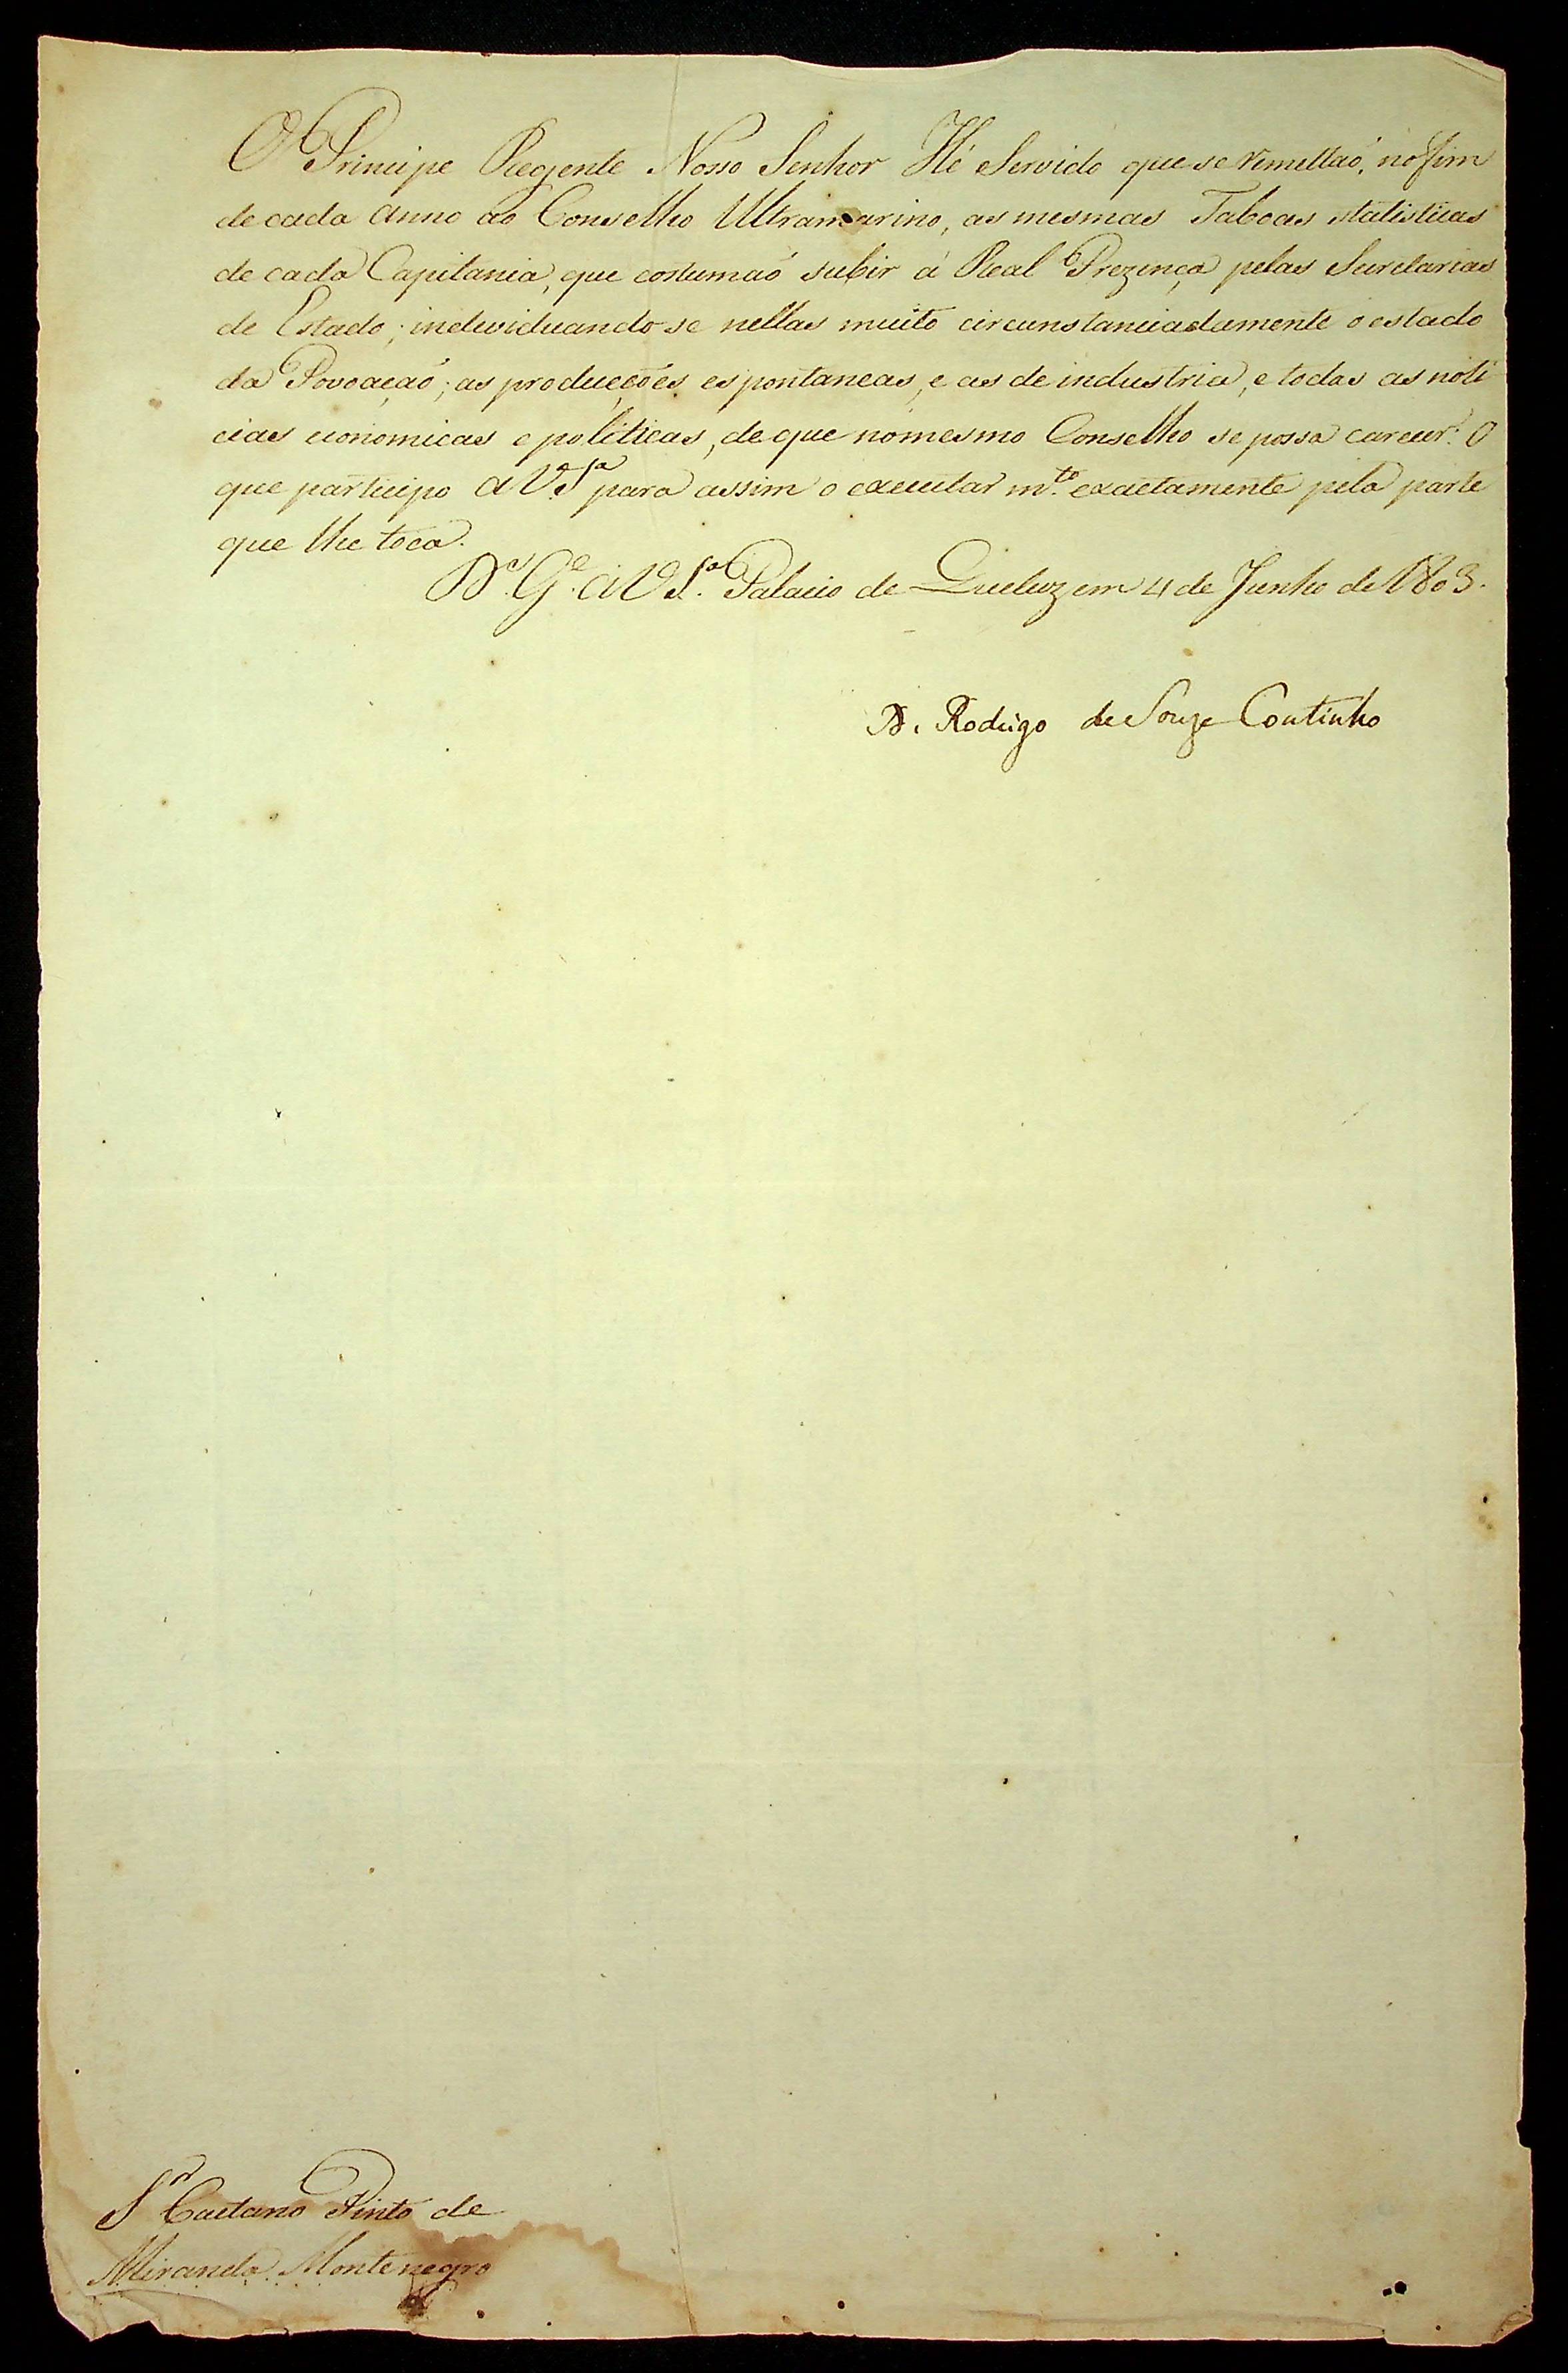 O Principe Regente Nosso Senhor Hé Servido que se remettaõ, no fim
de cada anno ao Conselho Ultramarino, as mesmas Taboas statisticas
de cada Capitania, que costumaõ subir á Real Prezença pelas Secretarias
de Estado; individuando-se nellas muito circunstanciadamente o estado
da Povoaçaõ; as producções espontaneas, e as de industria, e todas as noti
cias economicas e politicas, de que no mesmo Conselho se possa carecer: O
que participo a V. S.ª para assim o executar m.to exactamente pela parte
que lhe toca.
D.s G.e a V. S.ª Palacio de Queluz em 4 de Junho de 1803.
D. Rodrigo de Souza Coutinho
S.r Caetano Pinto de
Miranda Montenegro